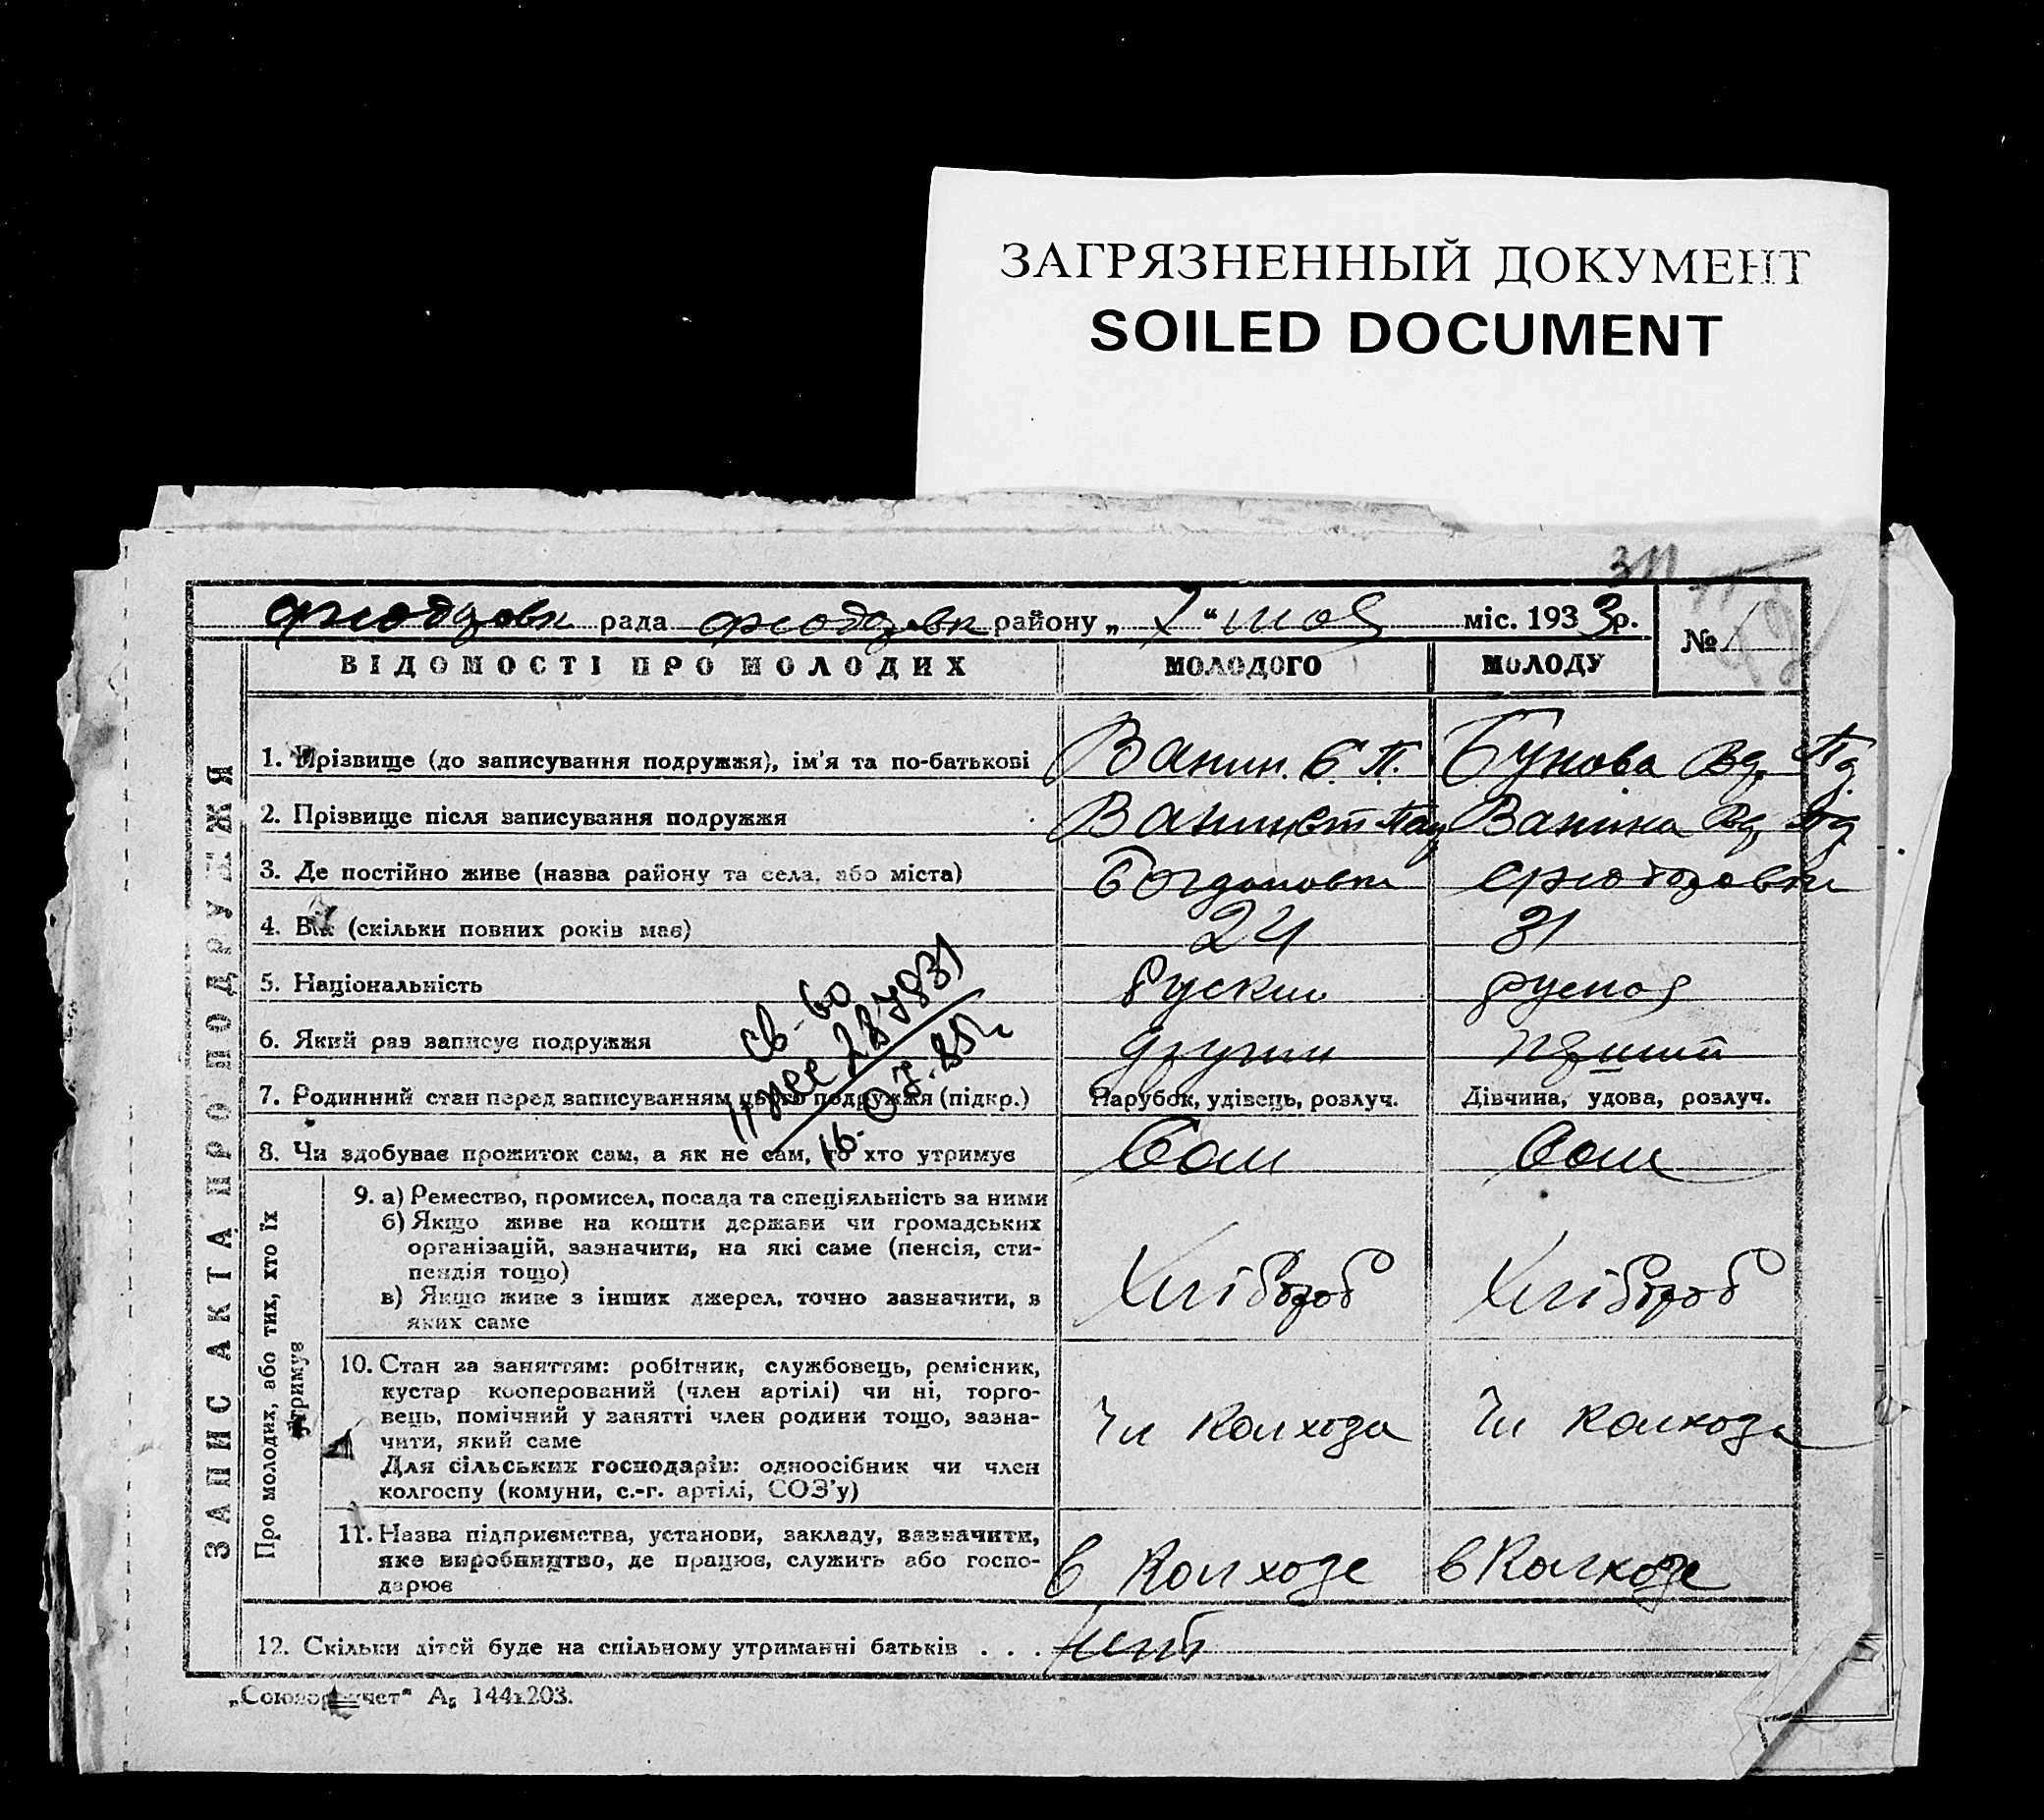 ЗАГРЯЗНЕННЫЙ ДОКУМЕНТ
SOILED DOCUMENT
рада району „ “ міс. 1933р.
№
ВІДОМОСТІ ПРО МОЛОДИХ МОЛОДОГО МОЛОДУ
ЗАПИС АКТА ПРО ПОДРУЖЖЯ
1. Прізвище (до записування подружжя), ім'я та по-батькові Ванин. Е. П. Бунова
2. Прізвище після записування подружжя Ванин Ванина
3. Де постійно живе (назва району та села, або міста)
4. Вік (скільки повних років має) 24 31
5. Національність Руский
6. Який раз записує подружжя
7. Родинний стан перед записуванням цього подружжя (підкр.) Парубок, удівець, розлуч. Дівчина, удова, розлуч.
8. Чи здобуває прожиток сам, а як не сам, то хто утримує Сам Сам
Про молодих, або тих, хто їх утримує
9. а) Ремество, промисел, посада та спеціяльність за ними
б) Якщо живе на кошти держави чи громадських
організацій, зазначити, на які саме (пенсія, сти-
пендія тощо) Хлібороб Хлібороб
в) Якщо живе з інших джерел, точно зазначити, в
яких саме
10. Стан за заняттям: робітник, службовець, ремісник,
кустар кооперований (член артілі) чи ні, торго-
вець, помічний у занятті член родини тощо, зазна-
чити, який саме Чл колхоза Чл колхоза
Для сільських господарів: одноосібник чи член
колгоспу (комуни, с.-г. артілі, СОЗ'у)
11. Назва підприємства, установи, закладу, зазначити,
яке виробництво, де працює, служить або госпо-
дарює в колхозе в колхозе
12. Скільки дітей буде на спільному утриманні батьків . . .